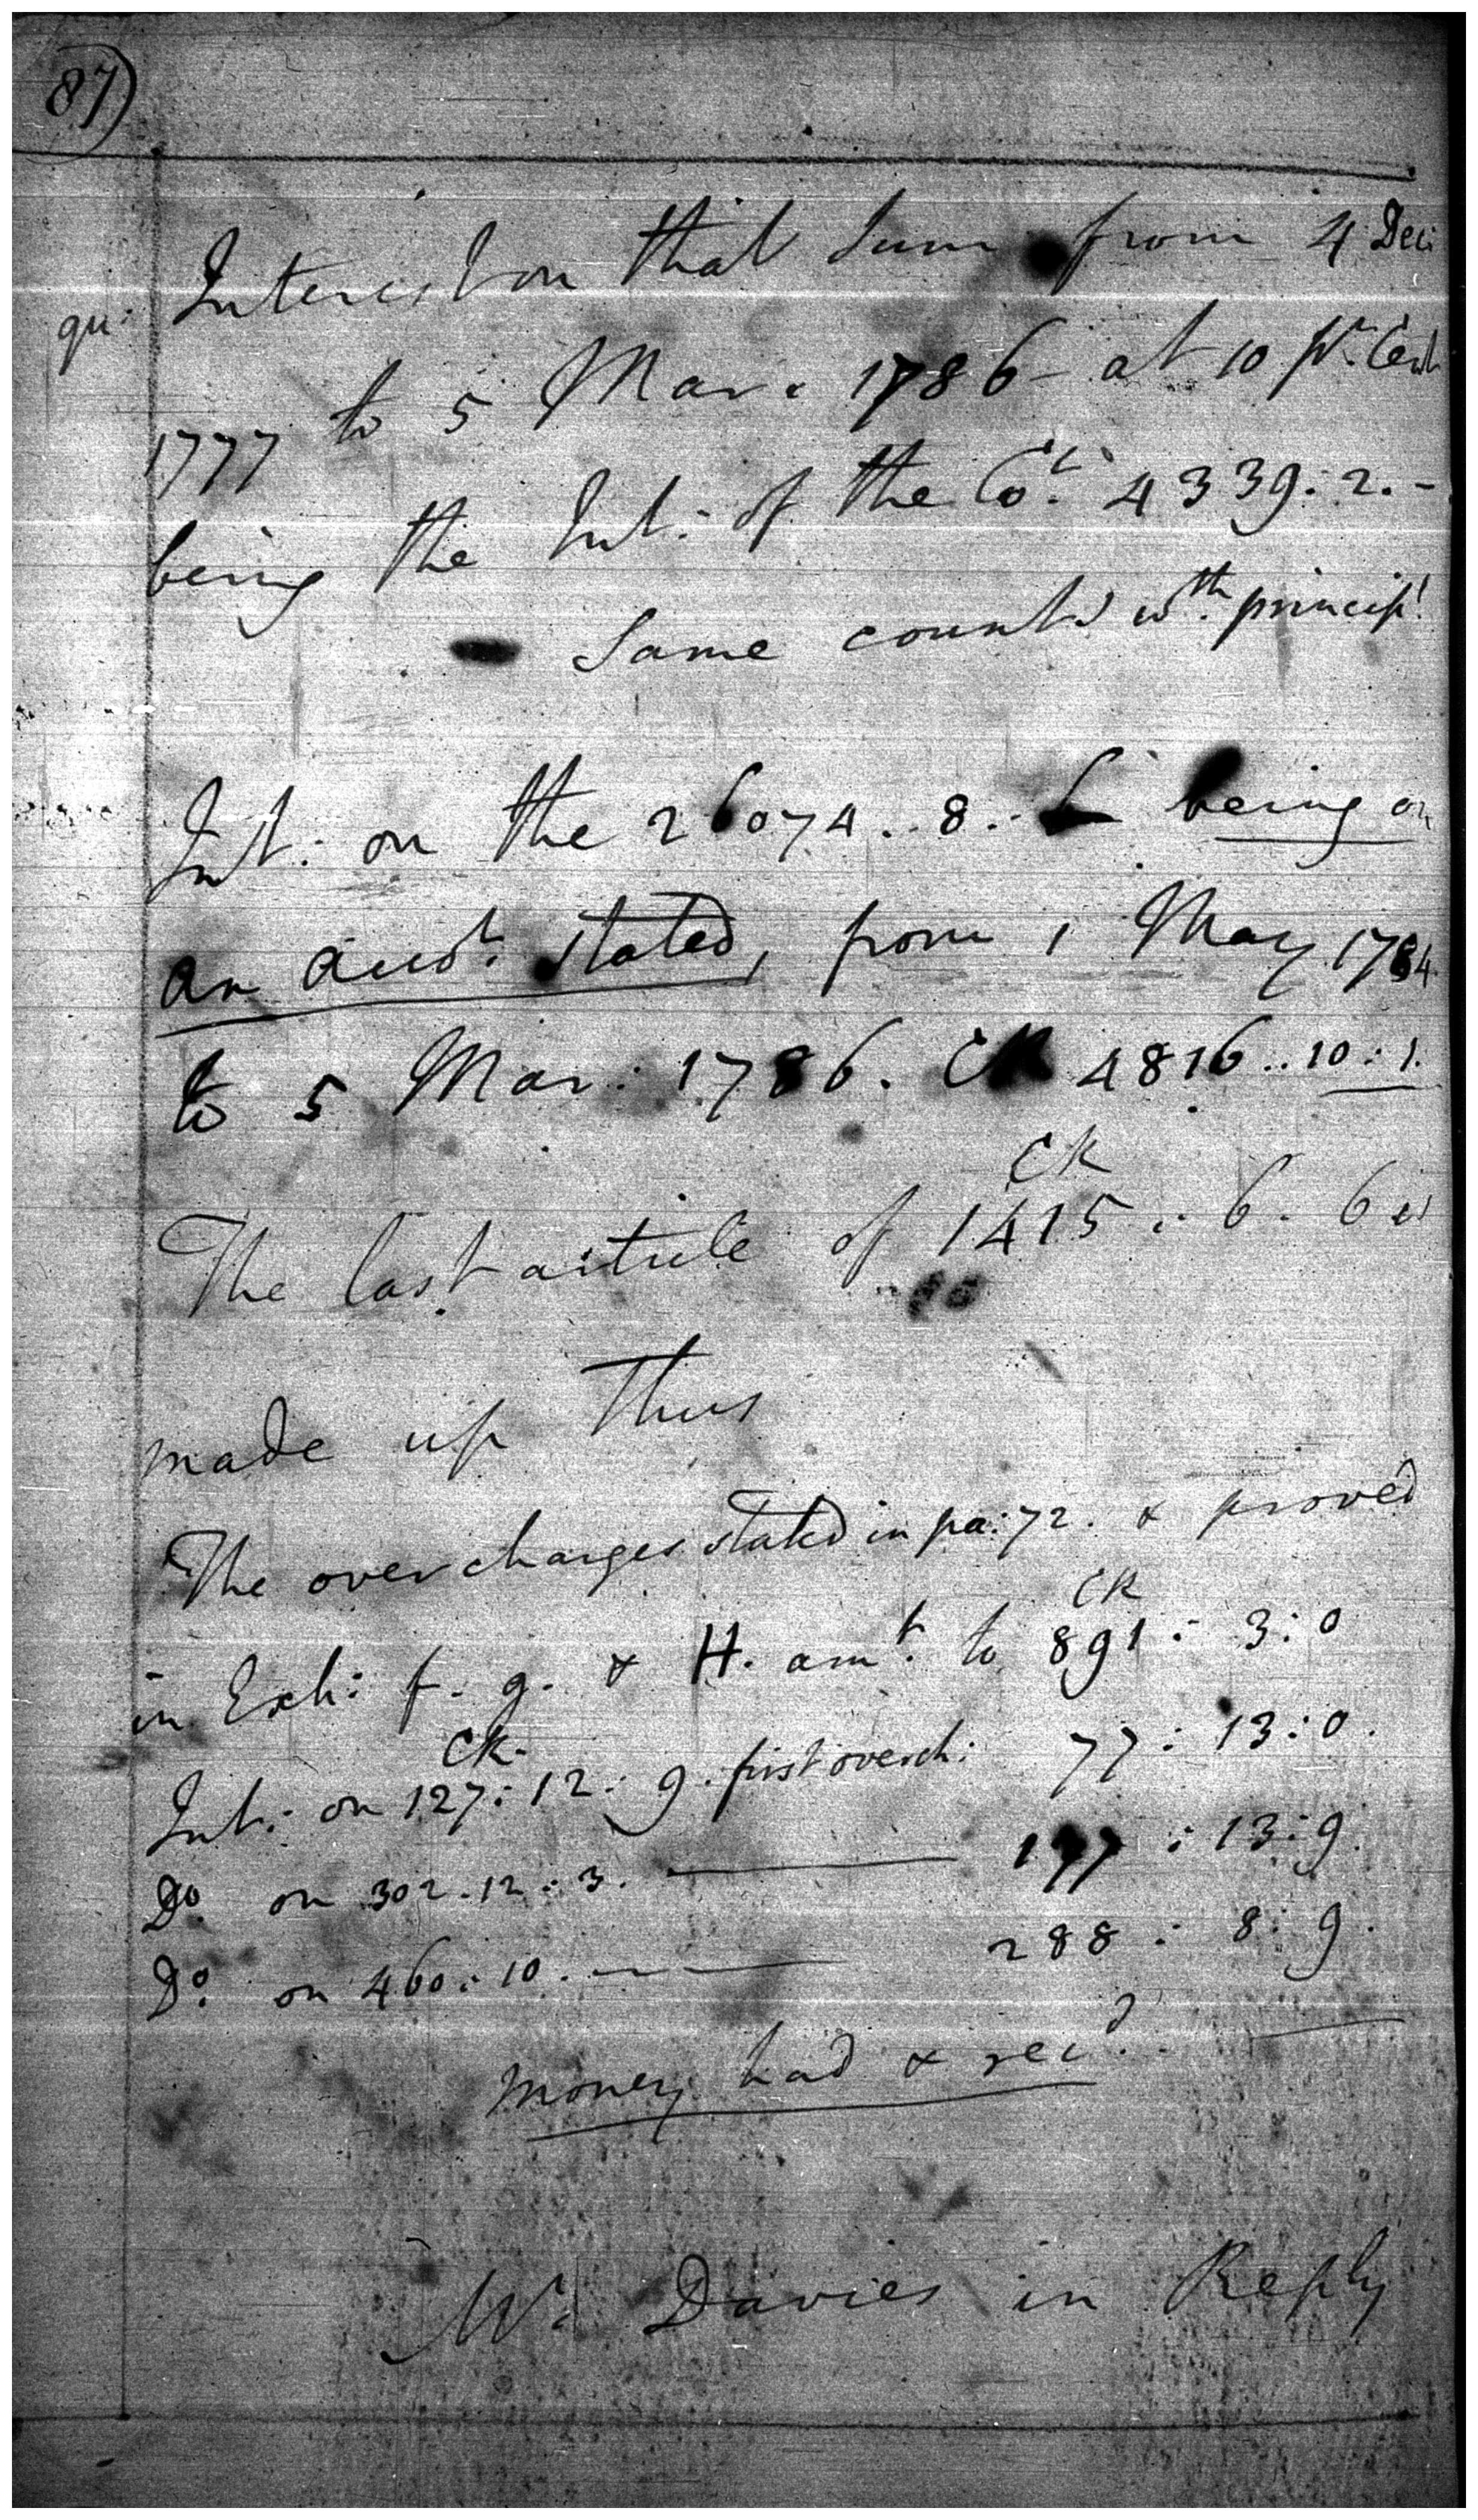 87)
Interest on that Sum from 4 Decr
qu: 1777 to 5 Mar: 1786 - at 10 pr. Cent
being the Int: of the Cot. 4339:2.-
Same counts wth. principl
Int: on the 26074..8.. being on
an acct. stated, from 1 May 1784
to 5 Mar: 1786. CR 4816..10:1.
CR
The last article of 1415:6.6 is
made up Thus
The overcharges stated in pa:72. & proved
CR
in Exh: f. g. & H. amt. to 891:3:0
CR.
Int: on 127:12:9. first overch: 77:13:0.
Do. on 302.12:3. 177:13:9.
Do. on 460:10. 288:8:9.
money had & recd.
Mr. Davies in Reply